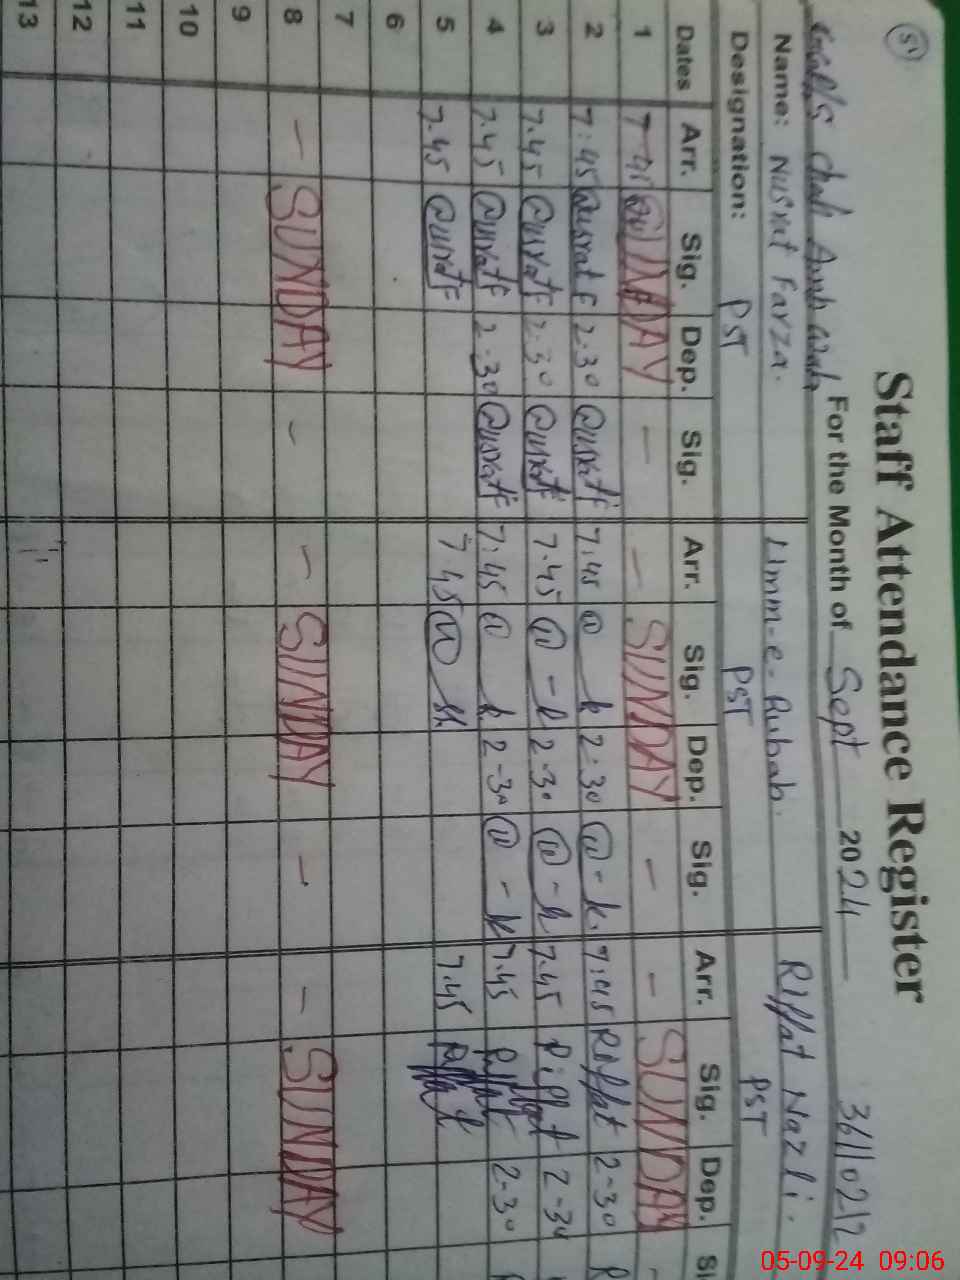 51
Staff Attendance Register
For the Month of Sept 2024 36110212
Name: Nusrat Farza. Umm-e-Rubab. Riffat Nazli.
Designation: PST PST PST
Dates Arr. Sig. Dep. Sig. Arr. Sig. Dep. Sig. Arr. Sig. Dep.
1 7-45 SUNDAY — — SUNDAY — — SUNDAY
2 7:45 Nusrat F 2.30 Nusrat F 7.45 U k 2.30 U-k. 7:45 Riffat 2-30
3 7.45 Nusrat F 2.30 Nusrat F 7.45 U-k 2-30 U-k 7.45 Riffat 2-30
4 7.45 Nusrat F 2.30 Nusrat F 7.45 U k 2-30 U-k 7.45 Riffat 2-30
5 7.45 Nusrat F 7.45 U 7.45 Riffat
6
7
8 — SUNDAY - — SUNDAY — — SUNDAY
9
10
11
12
13
05-09-24 09:06